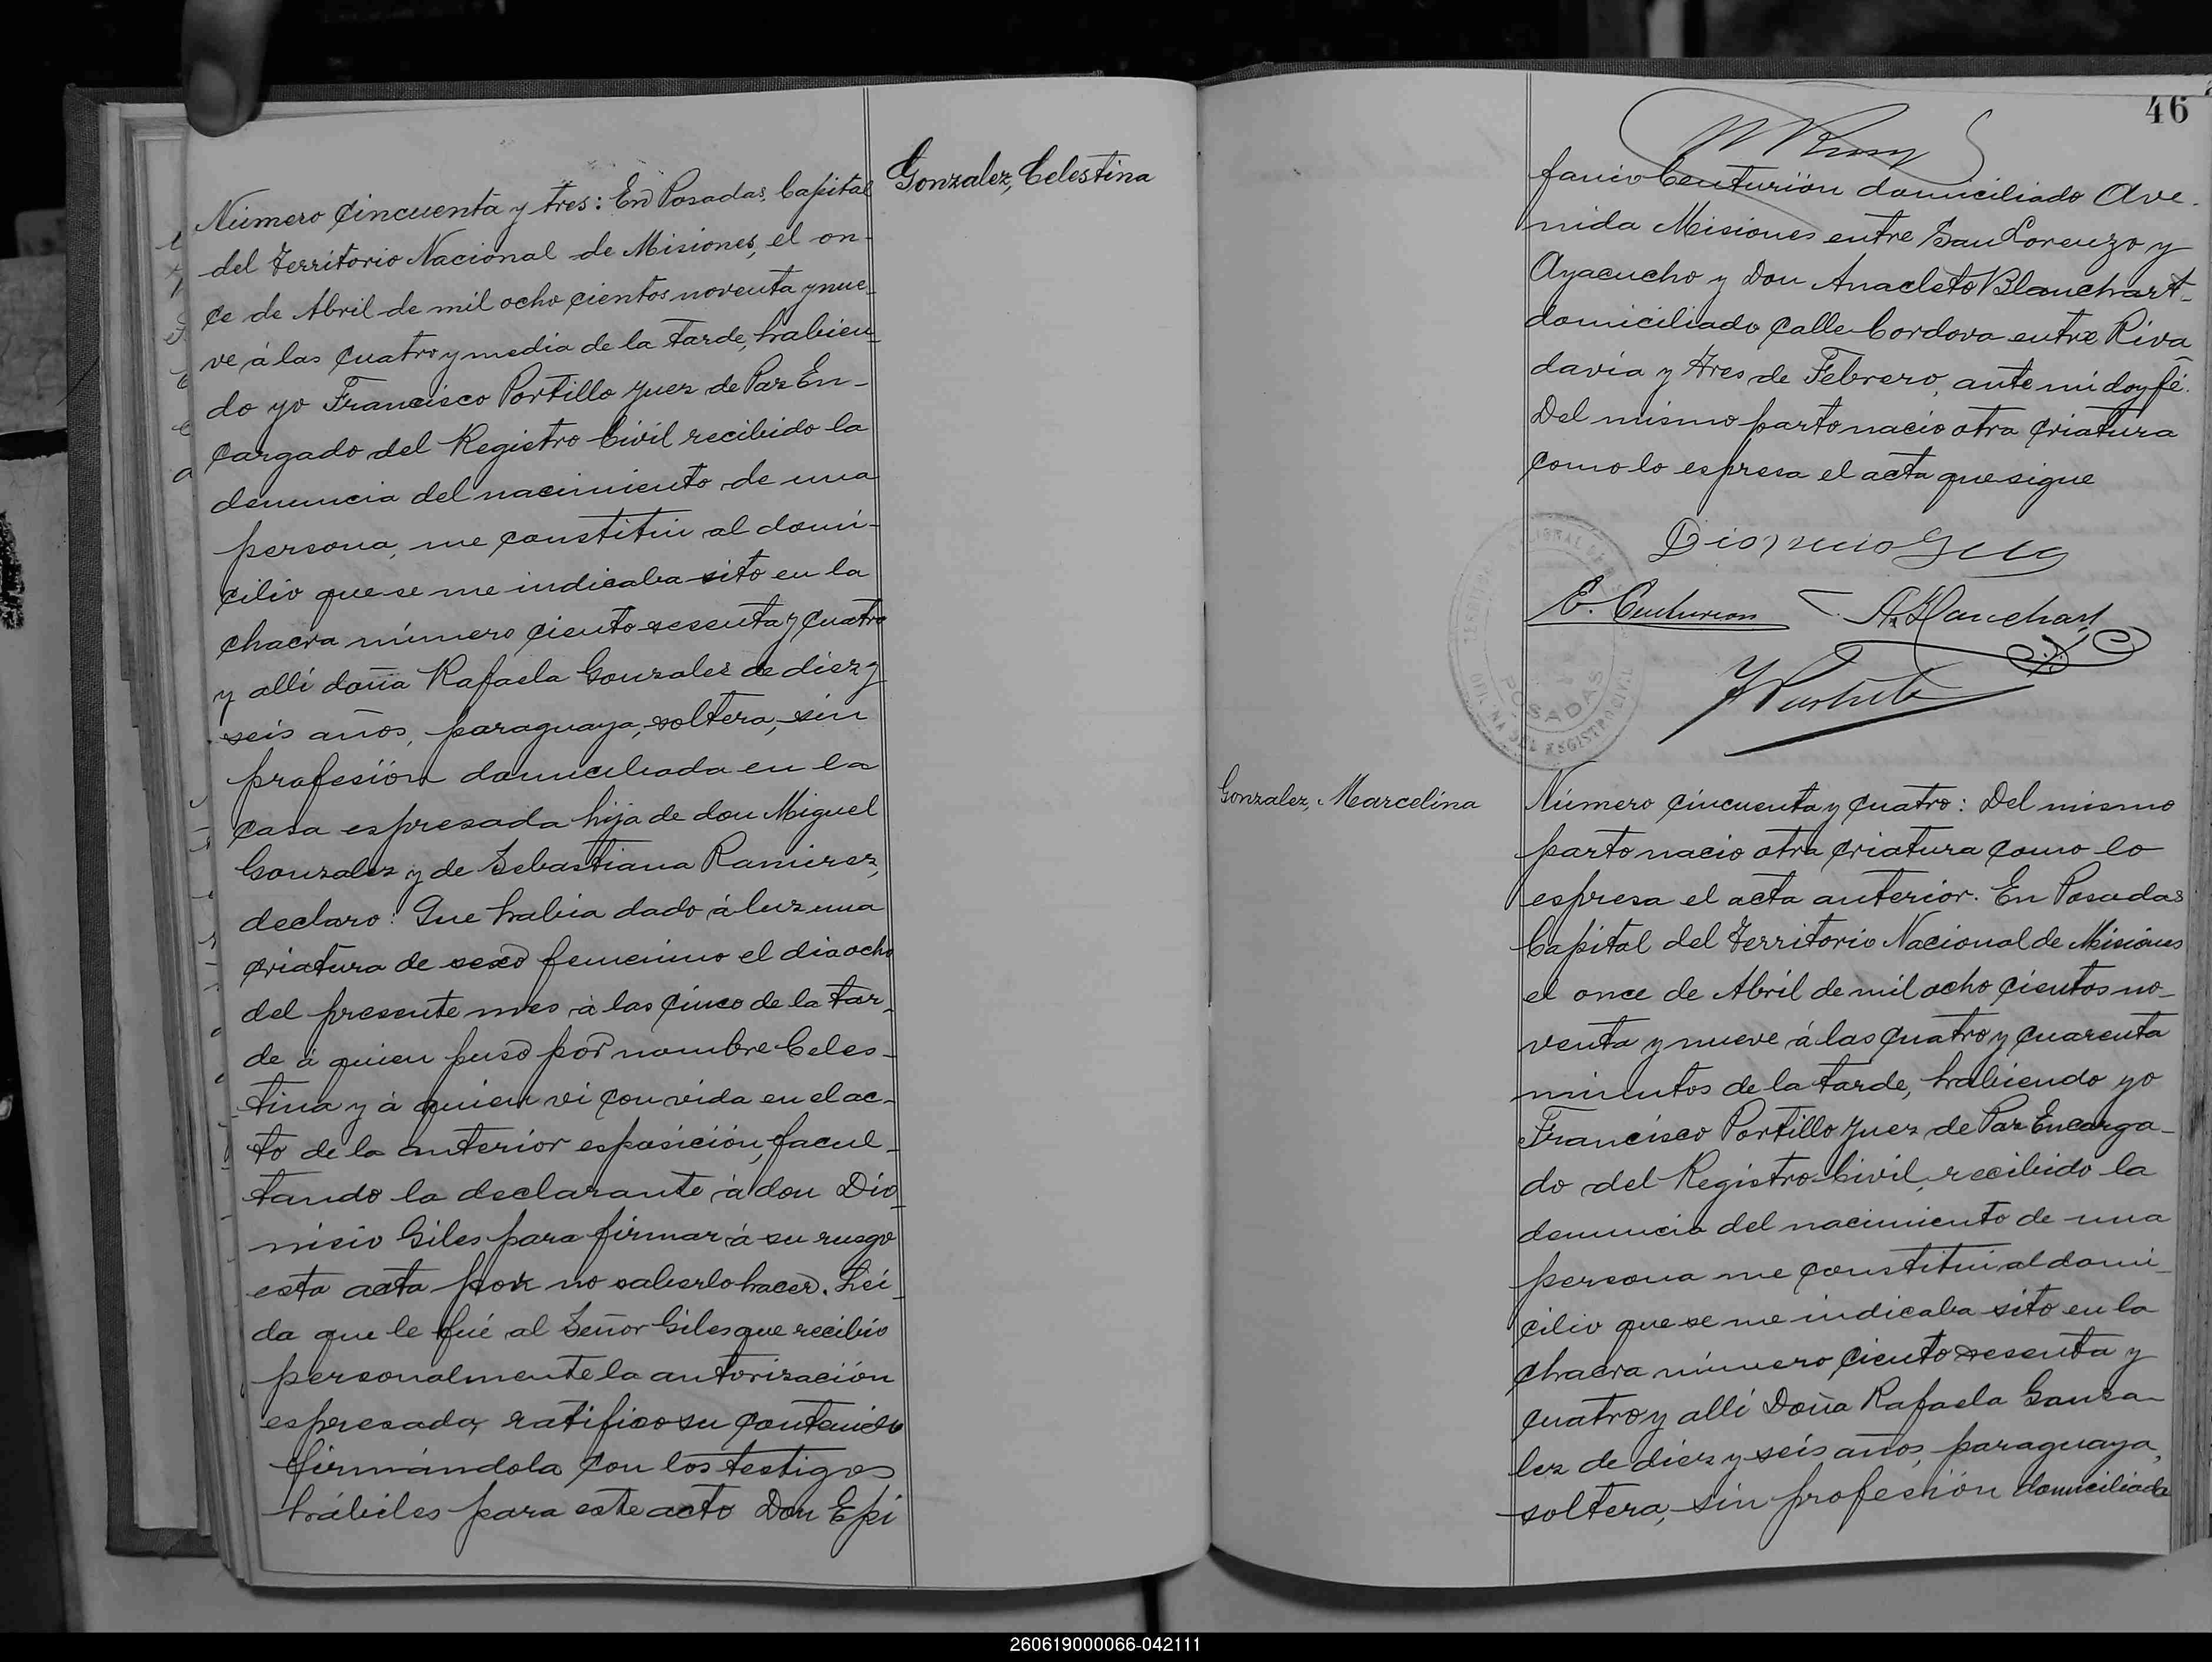 Gonzalez, Celestina
Número cincuenta y tres: En Posadas, Capital
del Territorio Nacional de Misiones, el on-
ce de Abril de mil ocho cientos noventa y nue-
ve á las cuatro y media de la tarde, habien-
do yo Francisco Portillo Juez de Paz En-
cargado del Registro Civil recibido la
denuncia del nacimiento de una
persona, me constitui al domi-
cilio que se me indicaba sito en la
chacra número ciento sesenta y cuatro
y allí doña Rafaela Gonzalez de diez y
seis años, paraguaya, soltera, sin
profesión domiciliada en la
casa espresada hija de don Miguel
Gonzalez y de Sebastiana Ramirez,
declaro: Que habia dado á luz una
criatura de sexo femenino el dia ocho
del presente mes á las cinco de la tar-
de á quien puso por nombre Celes-
tina y á quien vi con vida en el ac-
to de la anterior esposición, facul-
tando la declarante á don Dio-
nisio Giles para firmar á su ruego
esta acta por no saberlo hacer. Lei-
da que le fué al Señor Giles que recibio
personalmente la autorización
espresada, ratifico su contenido
firmándola con los testigos
hábiles para este acto Don Epi
46
fanio Centurión domiciliado Ave-
nida Misiones entre San Lorenzo y
Ayacucho y Don Anacleto Blanchart
domiciliado calle Cordova entre Riva
davia y Tres de Febrero, ante mi doy fé.
Del mismo parto nacio otra criatura
como lo espresa el acta que sigue
Dionicio Giles
E. Centurion A. Blanchart
POSADAS
OFICINA DEL REGISTRO CIVIL
Gonzalez, Marcelina
Número cincuenta y cuatro: Del mismo
parto nacio otra criatura como lo
espresa el acta anterior. En Posadas
Capital del Territorio Nacional de Misiones
el once de Abril de mil ocho cientos no-
venta y nueve á las cuatro y cuarenta
minutos de la tarde, habiendo yo
Francisco Portillo Juez de Paz Encarga-
do del Registro Civil, recibido la
denuncia del nacimiento de una
persona me constitui al domi-
cilio que se me indicaba sito en la
chacra número ciento sesenta y
cuatro y allí Doña Rafaela Gonza-
lez de diez y seis años, paraguaya,
soltera, sin profesión domiciliada
260619000066-042111